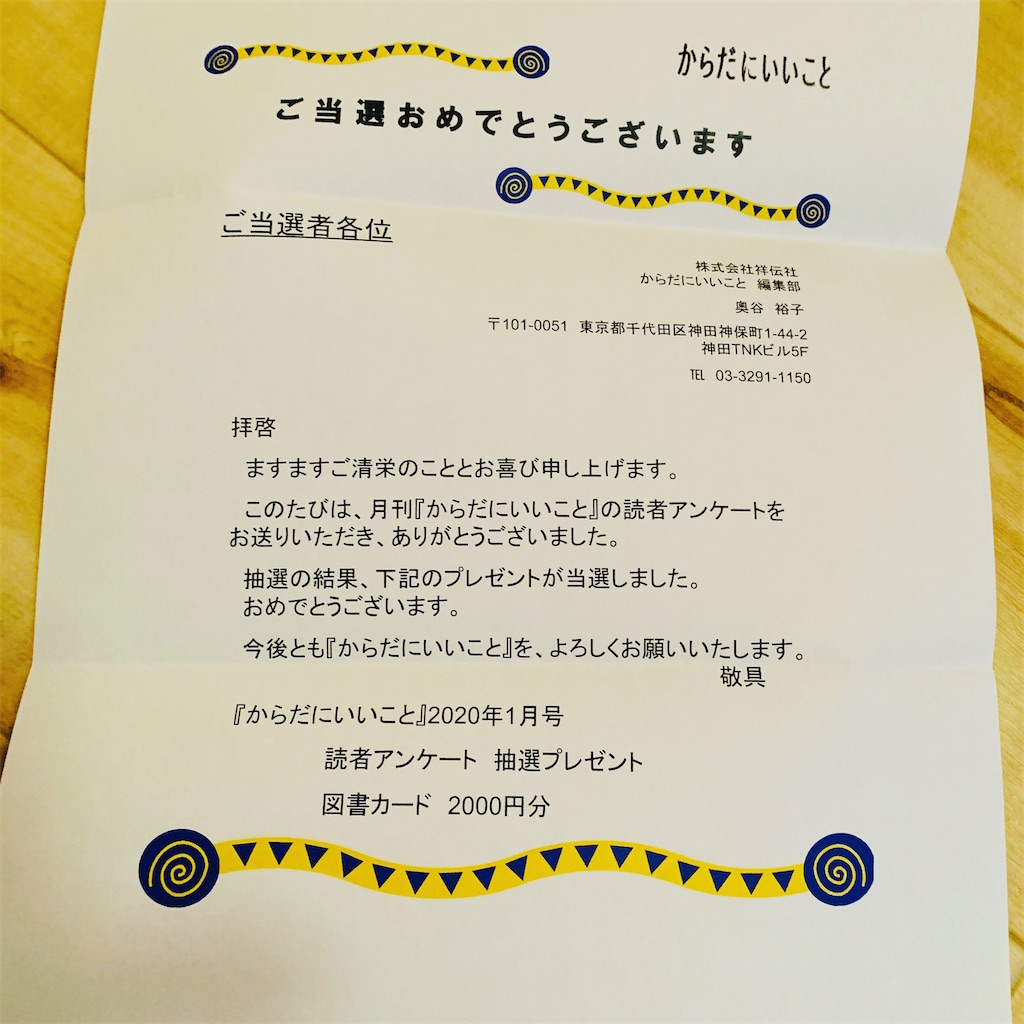 からだにいいこと
ご当選おめでとうございます
ご当選者各位
株式会社祥伝社
からだにいいこと 編集部
奥谷 裕子
〒101-0051 東京都千代田区神田神保町1-44-2
神田TNKビル5F
℡ 03-3291-1150
拝啓
ますますご清栄のこととお喜び申し上げます。
このたびは、月刊『からだにいいこと』の読者アンケートを
お送りいただき、ありがとうございました。
抽選の結果、下記のプレゼントが当選しました。
おめでとうございます。
今後とも『からだにいいこと』を、よろしくお願いいたします。
敬具
『からだにいいこと』2020年1月号
読者アンケート 抽選プレゼント
図書カード 2000円分